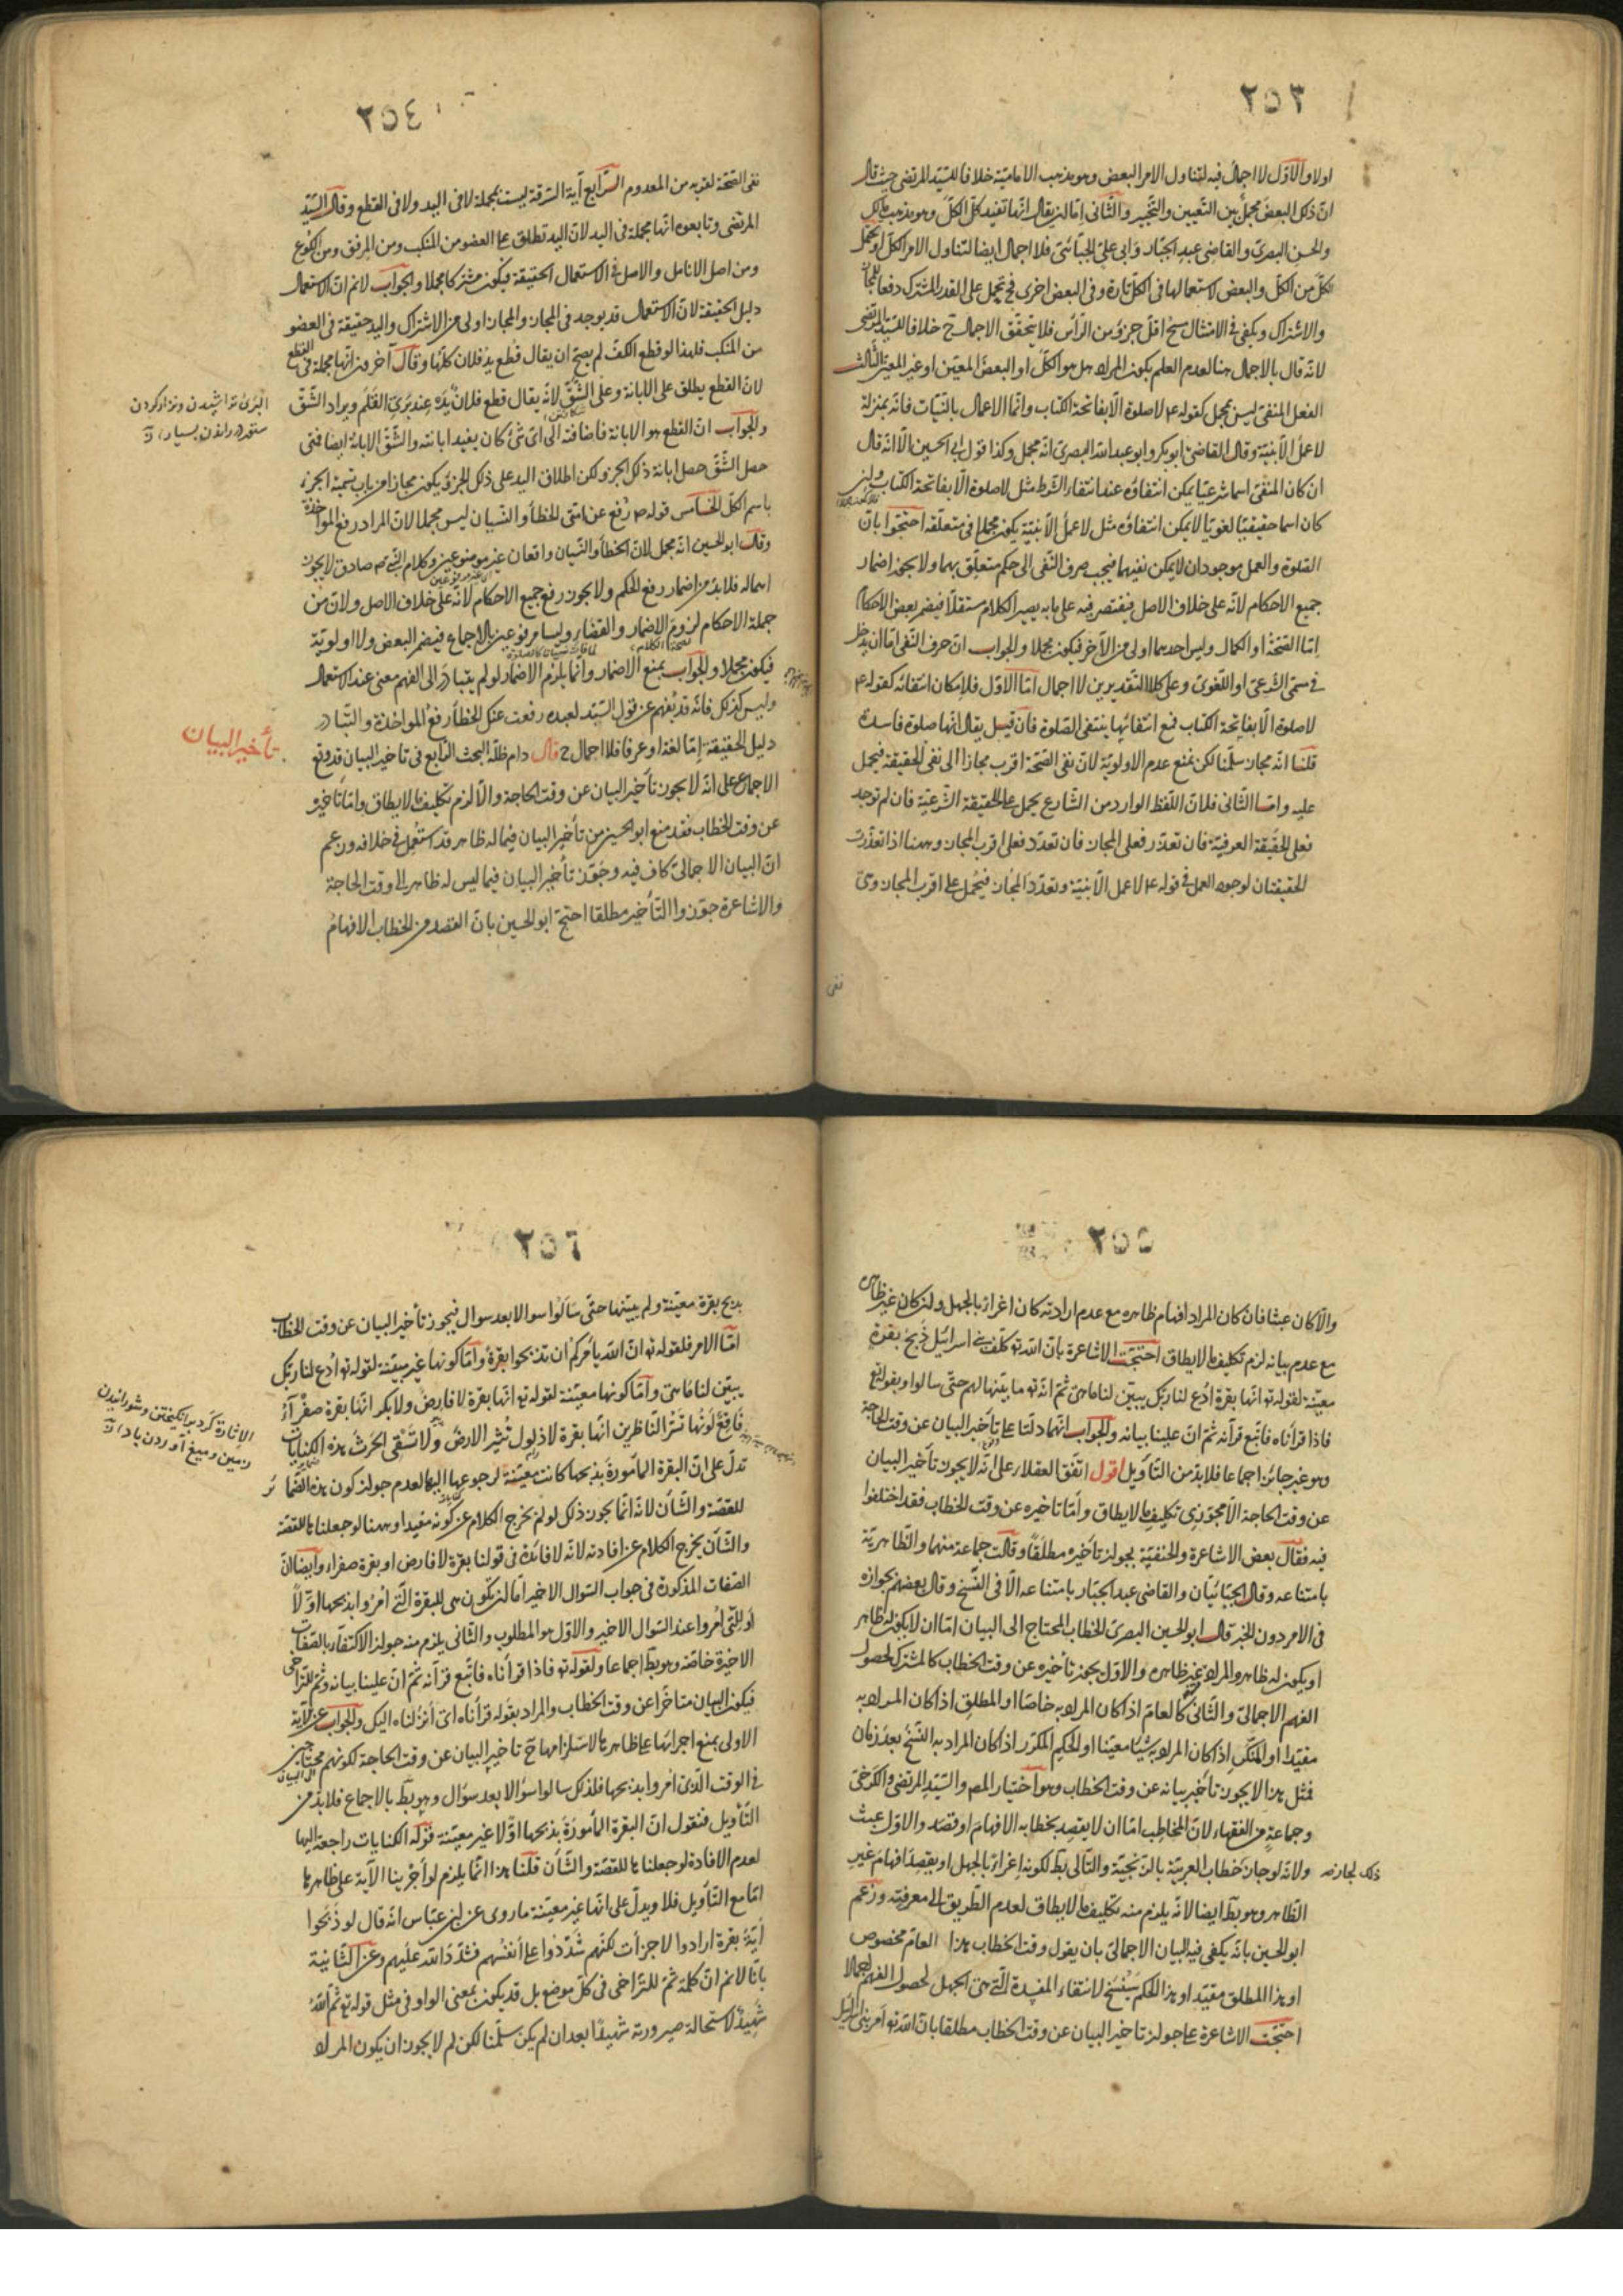 ٢٥٣
اولا والاوّل لا اجمال فيه لتناول الامر البعض وهو مذهب الامامية خلافا للسّيد المرتضى حيث قال
انّ ذلك البعض مجمل بين التّعيين والتّخيير والثّانى امّا ان يقال انّها تفيد كلّ الكلّ وهو مذهب مالك
والحسن البصرىّ والقاضى عبد الجبّار وابى علىّ الجبّائىّ فلا اجمال ايضا لتناول الامر الكلّ او يحتمل
كلّ من الكلّ والبعض لاستعمالها فى الكلّ تارة وفى البعض اخرى فح يحمل على القدر المشترك دفعا للمجاز
والاشتراك ويكفى فى الامتثال مسح اقلّ جزؤ من الرّأس فلا يتحقّق الاجمال ح خلافا للسّيد المرتضى
لانّه قال بالاجمال هنا لعدم العلم بكون المراد هل هو الكلّ او البعض المعيّن او غير المعيّن الثّالث
الفعل المنفىّ ليس بمجمل كقوله ع لا صلوة الّا بفاتحة الكتاب وانّما الاعمال بالنّيّات فانّه بمنزلة
لا عمل الّا بنيّة وقال القاضى ابو بكر وابو عبد الله البصرىّ انّه مجمل وكذا قول ابى الحسين الّا انّه قال
ان كان المنفىّ اسما شرعيّا يمكن انتفاؤه عند انتفاء الشّرط مثل لا صلوة الّا بفاتحة الكتاب وان
كان اسما حقيقيّا لغويّا لا يمكن انتفاؤه مثل لا عمل الّا بنيّة يكون مجملا فى متعلّقه احتجّوا بانّ
الصّلوة والعمل موجودان لا يمكن نفيهما فيجب صرف النّفى الى حكم متعلّق بهما ولا يجوز اضمار
جميع الاحكام لانّه على خلاف الاصل فيقتصر فيه على ما به يصير الكلام مستقلّا فيضمر بعض الاحكام
امّا الصّحّة او الكمال وليس احدهما اولى من الآخر فيكون مجملا والجواب انّ حرف النّفى امّا ان يدخل
فى سمّى الشّرعىّ او اللّغوىّ وعلى كلا التّقديرين لا اجمال امّا الاوّل فلامكان انتفائه كقوله ع
لا صلوة الّا بفاتحة الكتاب فمع انتفائها ينتفى الصّلوة فان قيل يقال انّها صلوة فاسدة
قلنا انّه مجاز سلّمنا لكن نمنع عدم الاولويّة لانّ نفى الصّحّة اقرب مجازا الى نفى الحقيقة فيحمل
عليه وامّا الثّانى فلانّ اللّفظ الوارد من الشّارع يحمل على الحقيقة الشّرعيّة فان لم توجد
فعلى الحقيقة العرفيّة فان تعذّر فعلى المجاز فان تعدّد فعلى اقرب المجاز وههنا اذا تعذّرت
الحقيقتان لوجود العمل فى قوله ع لا عمل الّا بنيّة وتعدّد المجاز فيحمل على اقرب المجاز وهى
نفى
٢٥٤
نفى الصّحّة لقربه من المعدوم الرّابع آية السّرقة ليست بمجملة لا فى اليد ولا فى القطع وقال السّيّد
المرتضى وتابعوه انّها مجملة فى اليد لانّ اليد تطلق على العضو من المنكب ومن المرفق ومن الكوع
ومن اصل الانامل والاصل فى الاستعمال الحقيقة فيكون مشتركا مجملا والجواب لانم انّ الاستعمال
دليل الحقيقة لانّ الاستعمال قد يوجد فى المجاز والمجاز اولى من الاشتراك واليد حقيقة فى العضو
من المنكب فلهذا لو قطع الكفّ لم يصحّ ان يقال قطع يد فلان كلّها وقال آخرون انّها مجملة فى القطع
لانّ القطع يطلق على الابانة وعلى الشّقّ لانّه يقال قطع فلان يده عند برى القلم ويراد الشّقّ
البرى تراشيدن ونزار كردن
والجواب انّ القطع هو الابانة فاضافته الى اىّ شئ كان يفيد ابانته والشّقّ الابانة ايضا فمتى
حصل الشّقّ حصل ابانة ذلك الجزء لكن اطلاق اليد على ذلك الجزؤ يكون مجازا من باب تسمية الجزء
باسم الكلّ الخامس قوله ص رفع عن امّتى الخطأ والنّسيان ليس مجملا لانّ المراد رفع المؤاخذة
وقال ابو الحسين انّه مجمل لانّ الخطأ والنّسيان واقعان غير مرفوعين وكلام النّبى ص صادق لا يجوز
اهماله فلا بدّ من اضمار رفع الحكم ولا يجوز رفع جميع الاحكام لانّه على خلاف الاصل ولانّ من
جملة الاحكام لزوم الاضمار والقضاء وليسا مرفوعين بالاجماع فيضمر البعض ولا اولويّة
فيكون مجملا والجواب بمنع الاضمار وانّما يلزم الاضمار لو لم يتبادر الى الفهم معنى عند الاستعمال
وليس كذلك فانّه قد يفهم عن قول السّيّد لعبده رفعت عنك الخطأ رفع المؤاخذة والتّبادر
دليل الحقيقة امّا لغة او عرفا فلا اجمال ح قال دام ظلّه البحث الرّابع فى تأخير البيان قد وقع
تأخير البيان
الاجماع على انّه لا يجوز تأخير البيان عن وقت الحاجة والّا لزم تكليف ما لا يطاق وامّا تأخيره
عن وقت الخطاب فقد منع ابو الحسين من تأخير البيان فيما له ظاهر قد استعمل فى خلافه وزعم
انّ البيان الاجمالىّ كاف فيه وجوّز تأخير البيان فيما ليس له ظاهر الى وقت الحاجة
والاشاعرة جوّزوا التّأخير مطلقا احتجّ ابو الحسين بانّ القصد من الخطاب الافهام
٢٥٥
والّا كان عبثا فان كان المراد افهام ظاهره مع عدم ارادته كان اغراء بالجهل وان كان غير ظاهره
مع عدم بيانه لزم تكليف ما لا يطاق احتجّت الاشاعرة بانّ الله تع كلّف بنى اسرائيل ذبح بقرة
معيّنة لقوله تع انّها بقرة ادع لنا ربّك يبيّن لنا ما هى ثمّ انّه تع ما بيّنها لهم حتّى سالوا وبقوله تع
فاذا قرأناه فاتّبع قرآنه ثمّ انّ علينا بيانه والجواب انّهما دلّتا على تأخير البيان عن وقت الحاجة
وهو غير جائز اجماعا فلا بدّ من التّأويل اقول اتّفق العقلاء على انّه لا يجوز تأخير البيان
عن وقت الحاجة الّا مجوّزى تكليف ما لا يطاق وامّا تاخيره عن وقت الخطاب فقد اختلفوا
فيه فقال بعض الاشاعرة والحنفيّة بجواز تأخيره مطلقا وقالت جماعة منهما والظّاهريّة
بامتناعه وقال الجبّائيّان والقاضى عبد الجبّار بامتناعه الّا فى النّسخ وقال بعضهم بجوازه
فى الامر دون الخبر قال ابو الحسين البصرىّ الخطاب المحتاج الى البيان امّا ان لا يكون له ظاهر
او يكون له ظاهر والمراد غير ظاهره والاوّل يجوز تأخيره عن وقت الخطاب كالمشترك لحصول
الفهم الاجمالىّ والثّانى كالعامّ اذا كان المراد به خاصّا او المطلق اذا كان المراد به
مقيّدا او المنكّر اذا كان المراد به شيئا معيّنا او الحكم المكرّر اذا كان المراد به النّسخ بعد زمان
فمثل هذا لا يجوز تأخير بيانه عن وقت الخطاب وهو اختيار المص والسّيّد المرتضى والكرخىّ
وجماعة من الفقهاء لانّ المخاطب امّا ان لا يقصد بخطابه الافهام او قصد والاوّل عبث
ولانّه لو جاز خطاب العربيّة بالزّنجيّة والتّالى بط لكونه اغراء بالجهل او يقصد افهام غير
ذلك لجاز صح
الظّاهر وهو بط ايضا لانّه يلزم منه تكليف ما لا يطاق لعدم الطّريق الى معرفته وزعم
ابو الحسين بانّه يكفى فيه البيان الاجمالىّ بان يقول وقت الخطاب هذا العامّ مخصوص
او هذا المطلق مقيّد او هذا الحكم سينسخ لانتفاء المفسدة الّتى هى الجهل لحصول الفهم اجمالا
احتجّت الاشاعرة على جواز تاخير البيان عن وقت الخطاب مطلقا بانّ الله تع امر بنى اسرائيل
٢٥٦
بذبح بقرة معيّنة ولم يبيّنها حتّى سألوا سوالا بعد سوال فيجوز تأخير البيان عن وقت الخطاب
امّا الامر فلقوله تع انّ الله يأمركم ان تذبحوا بقرة وامّا كونها غير مبيّنة لقوله تع ادع لنا ربّك
يبيّن لنا ما هى وامّا كونها معيّنة لقوله تع انّها بقرة لا فارض ولا بكر انّها بقرة صفرآء
فاقع لونها تسرّ النّاظرين انّها بقرة لا ذلول تثير الارض ولا تسقى الحرث هذه الكنايات
الاثارة كرد برانگيختن وشورانيدن
زمين وميغ آوردن باد
تدلّ على انّ البقرة المأمورة بذبحها كانت معيّنة لرجوعها اليها لعدم جواز كون هذه الضّمائر
للقصّة والشّأن لانّه انّما يجوز ذلك لو لم يخرج الكلام عن كونه مفيدا وههنا لو جعلناها للقصّة
والشّأن يخرج الكلام عن افادته لانّه لا فائدة فى قولنا بقرة لا فارض او بقرة صفراء وايضا انّ
الصّفات المذكورة فى جواب السّوال الاخير امّا ان يكون هى للبقرة الّتى امروا بذبحها اوّلا
او للّتى امروا عند السّوال الاخير والاوّل هو المطلوب والثّانى يلزم منه جواز الاكتفاء بالصّفات
الاخيرة خاصّة وهو بط اجماعا ولقوله تع فاذا قرأناه فاتّبع قرآنه ثمّ انّ علينا بيانه وثمّ للتّراخى
فيكون البيان متأخّرا عن وقت الخطاب والمراد بقوله قرأناه اى انزلناه اليك والجواب عن الآية
الاولى بمنع اجرائها على ظاهرها لاستلزامها ح تاخير البيان عن وقت الحاجة لكونهم محتاجين
فى الوقت الّذى امروا بذبحها فلذلك سالوا سؤالا بعد سؤال وهو بط بالاجماع فلا بدّ من
التّأويل فنقول انّ البقرة المأمورة بذبحها اوّلا غير معيّنة قوله الكنايات راجعة اليها
لعدم الافادة لو جعلناها للقصّة والشّأن قلنا هذا انّما يلزم لو أجرينا الآية على ظاهرها
امّا مع التّأويل فلا ويدلّ على انّها غير معيّنة ما روى عن ابن عبّاس انّه قال لو ذبحوا
ايّة بقرة ارادوا لاجزأت لكنّهم شدّدوا على انفسهم فشدّد الله عليهم وعن الثّانية
بانّا لانم انّ كلمة ثمّ للتّراخى فى كلّ موضع بل قد يكون بمعنى الواو فى مثل قوله تع ثمّ الله
شهيد لاستحالة صيرورته شهيدا بعد ان لم يكن سلّمنا لكن لم لا يجوز ان يكون المراد